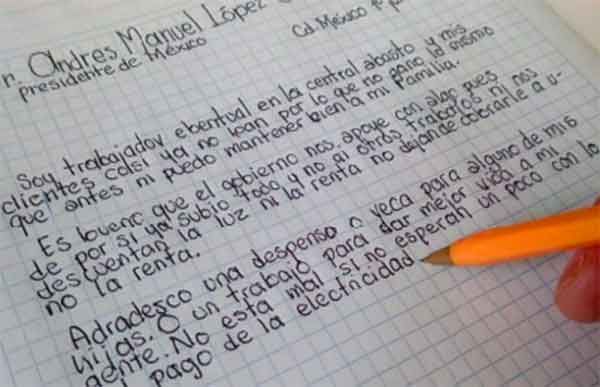 r. Andres Manuel López
presidente de México
Cd. México
Soy trabajador ebentual en la central abasto y mis
clientes casi ya no van por lo que no gano lo mismo
que antes ni puedo mantener bien a mi familia.
Es bueno que el gobierno nos apoye con algo pues
de por si ya subio todo y no ai otros trabajos ni nos
descuentan la luz ni la renta no dejan de cobrarle a u-
no la renta.
Adradesco una despensa o veca para alguno de mis
hijas. O un trabajo para dar mejor vida a mi
gente. No esta mal si no esperan un poco con lo
pago de la electricidad